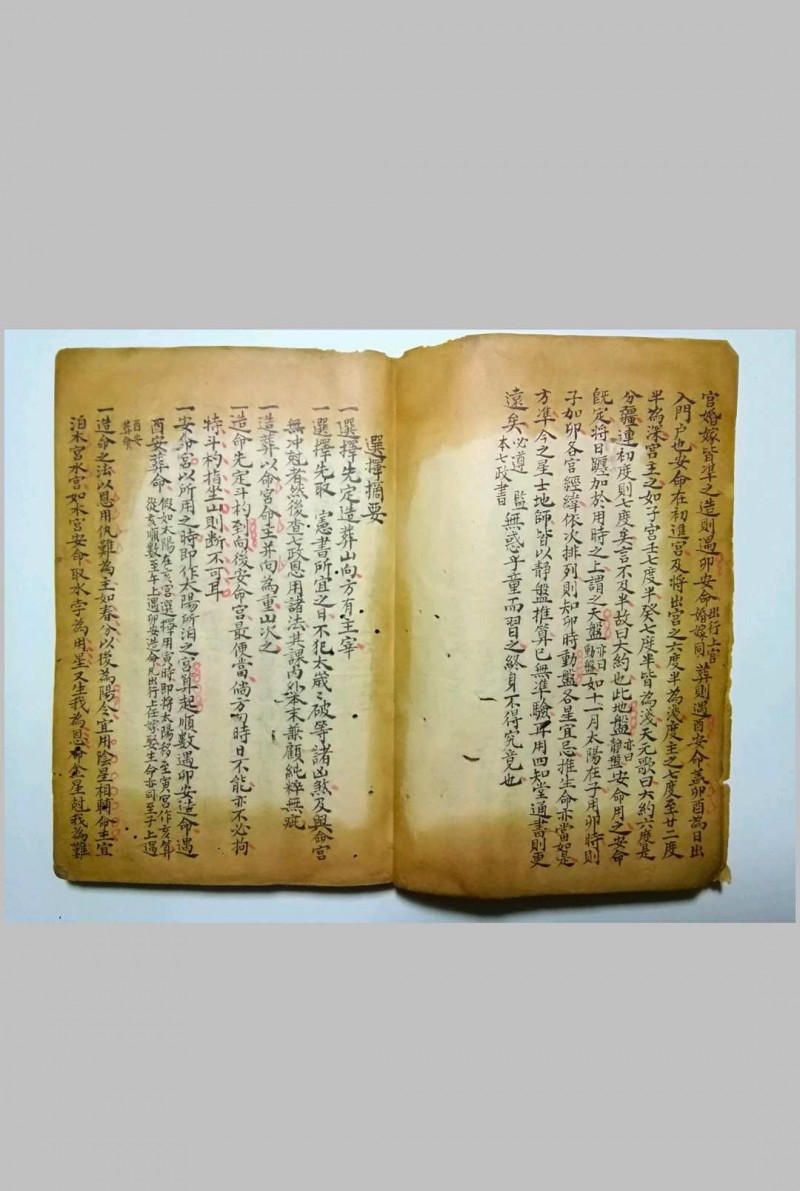 官婚嫁皆準之造則遇卯安命出行上官婚嫁同葬則遇酉安命蓋卯酉為日出
入門户也安命在初進宮及將出宮之六度半為淺度主之七度至廿二度
半為深宮主之如子宮壬七度半癸七度半皆為淺天元歌曰大約六度是
分疆連初度則七度矣言不及半故曰大約也此地盤亦曰靜盤安命用之安命
既定將日躔加於用時之上謂之天盤亦曰動盤如十一月太陽在子用卯時則
子加卯各宮經緯依次排列則知卯時動盤各星宜忌推生命亦當如是
方準今之星士地師皆以靜盤推算已無準驗耳用四知堂通書則更
遠矣必遵監本七政書無惑乎童而習之終身不得究竟也
選擇摘要
一選擇先定造葬山向方有主宰
一選擇先取憲書所宜之日不犯太歲々破等諸凶煞及與命宮
無冲尅者然後查七政恩用諸法其課内外本末兼顧純粹無疵
一造葬以命宮命主并向為重山次之
一造命先定斗杓到向後安命宮最便當倘方向時日不能亦不必拘
特斗杓指坐山則斷不可耳
一安命宮以所用之時即作太陽所泊之宮算起順數遇卯安造命遇
酉安葬命假如太陽在亥宮選擇用寅時即將太陽移至寅宮作亥算從亥順數至午上遇卯安造命凡出行上任嫁娶生命亦同至子上遇
酉安葬命
一造命之法以恩用仇難為主如春分以後為陽令宜用陰星相輔命主宜
泊木宮水宮如木宮安命取水孛為用星又生我為恩命金星尅我為難